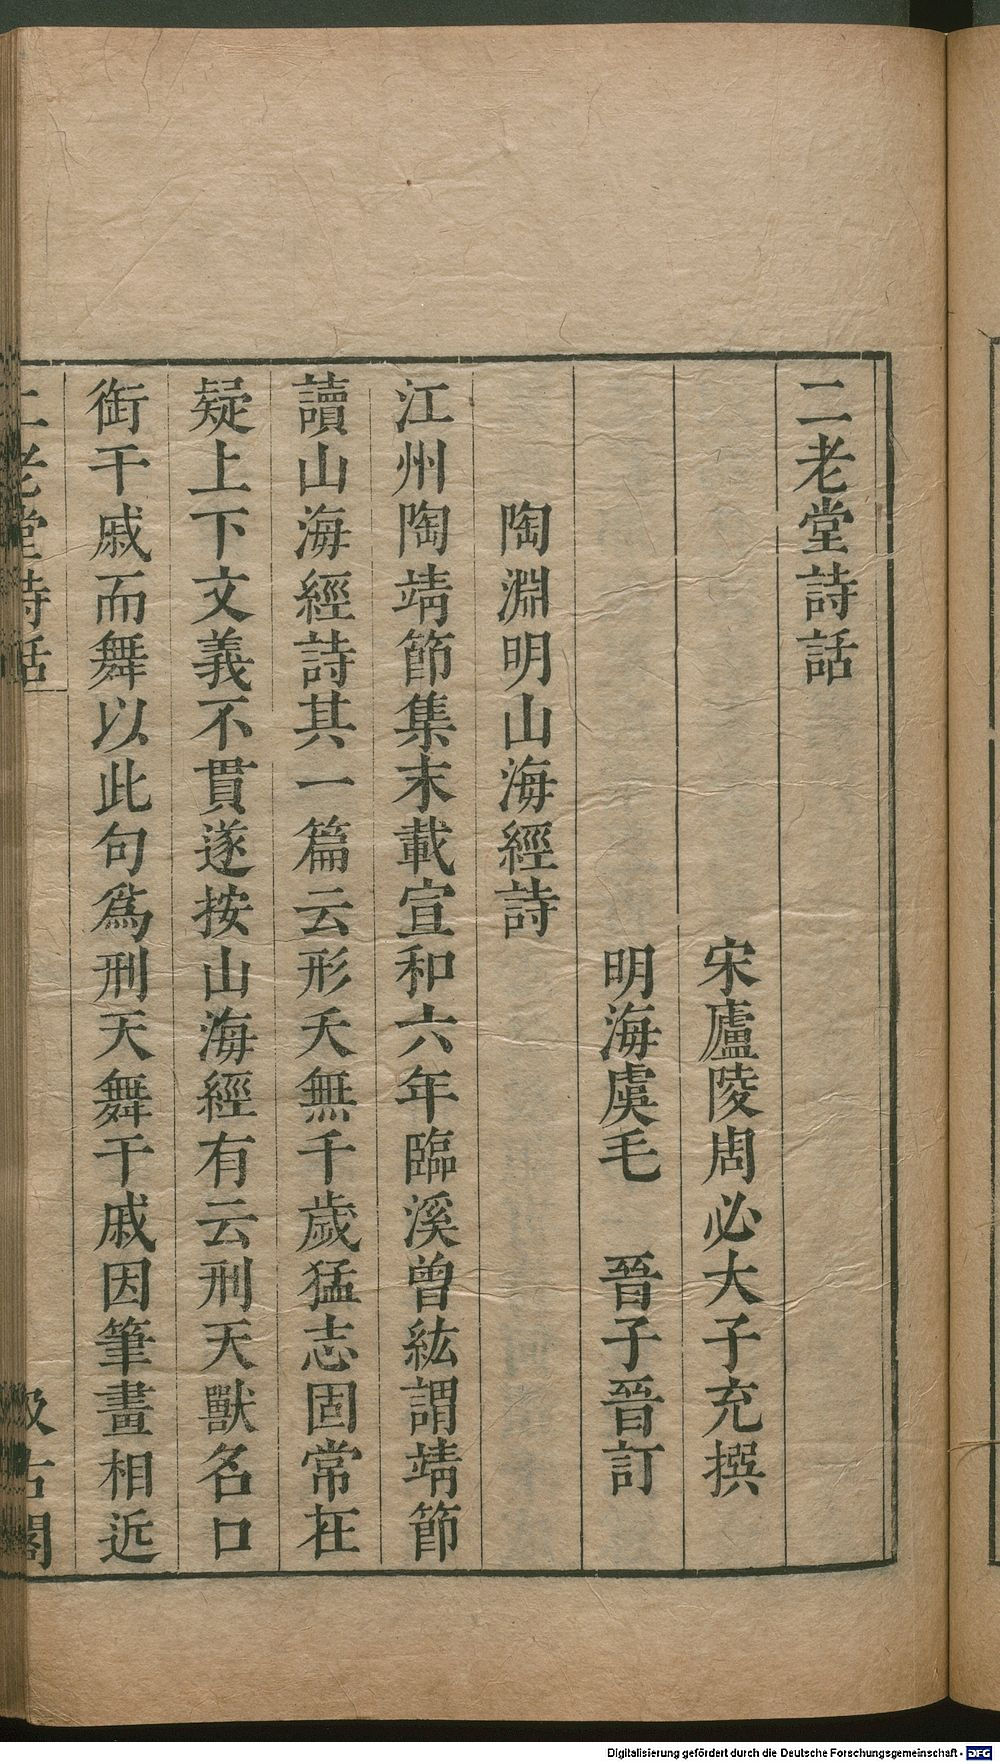 二老堂詩話
宋廬陵周必大子充撰
明海虞毛　晉子晉訂
陶淵明山海經詩
江州陶靖節集末載宣和六年臨溪曾紘謂靖節
讀山海經詩其一篇云形夭無千歲猛志固常在
疑上下文義不貫遂按山海經有云刑天獸名口
銜干戚而舞以此句爲刑天舞干戚因筆畫相近
二老堂詩話
汲古閣
Digitalisierung gefördert durch die Deutsche Forschungsgemeinschaft - DFG